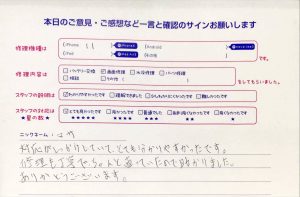 本日のご意見・ご感想など一言と確認のサインお願いします
修理機種は iPhone 11 Android
iPad その他 です。
修理内容は バッテリー交換 画面修理 水没修理 パーツ修理
相談 その他 をしてもらいました。
スタッフの説明は わかりやすかったです 理解できました 少しわかりにくかったです 難しかったです
スタッフの対応は とても良かったです 良かったです 普通でした あまり良くなかったです 良くなかったです
★星の数★ ★★★★★ ★★★★ ★★★ ★★ ★
ニックネーム:
対応がしっかりしていて、とても分かりやすかったです。
修理も丁寧で、ちゃんと直っていたので助かりました。
ありがとうございます。